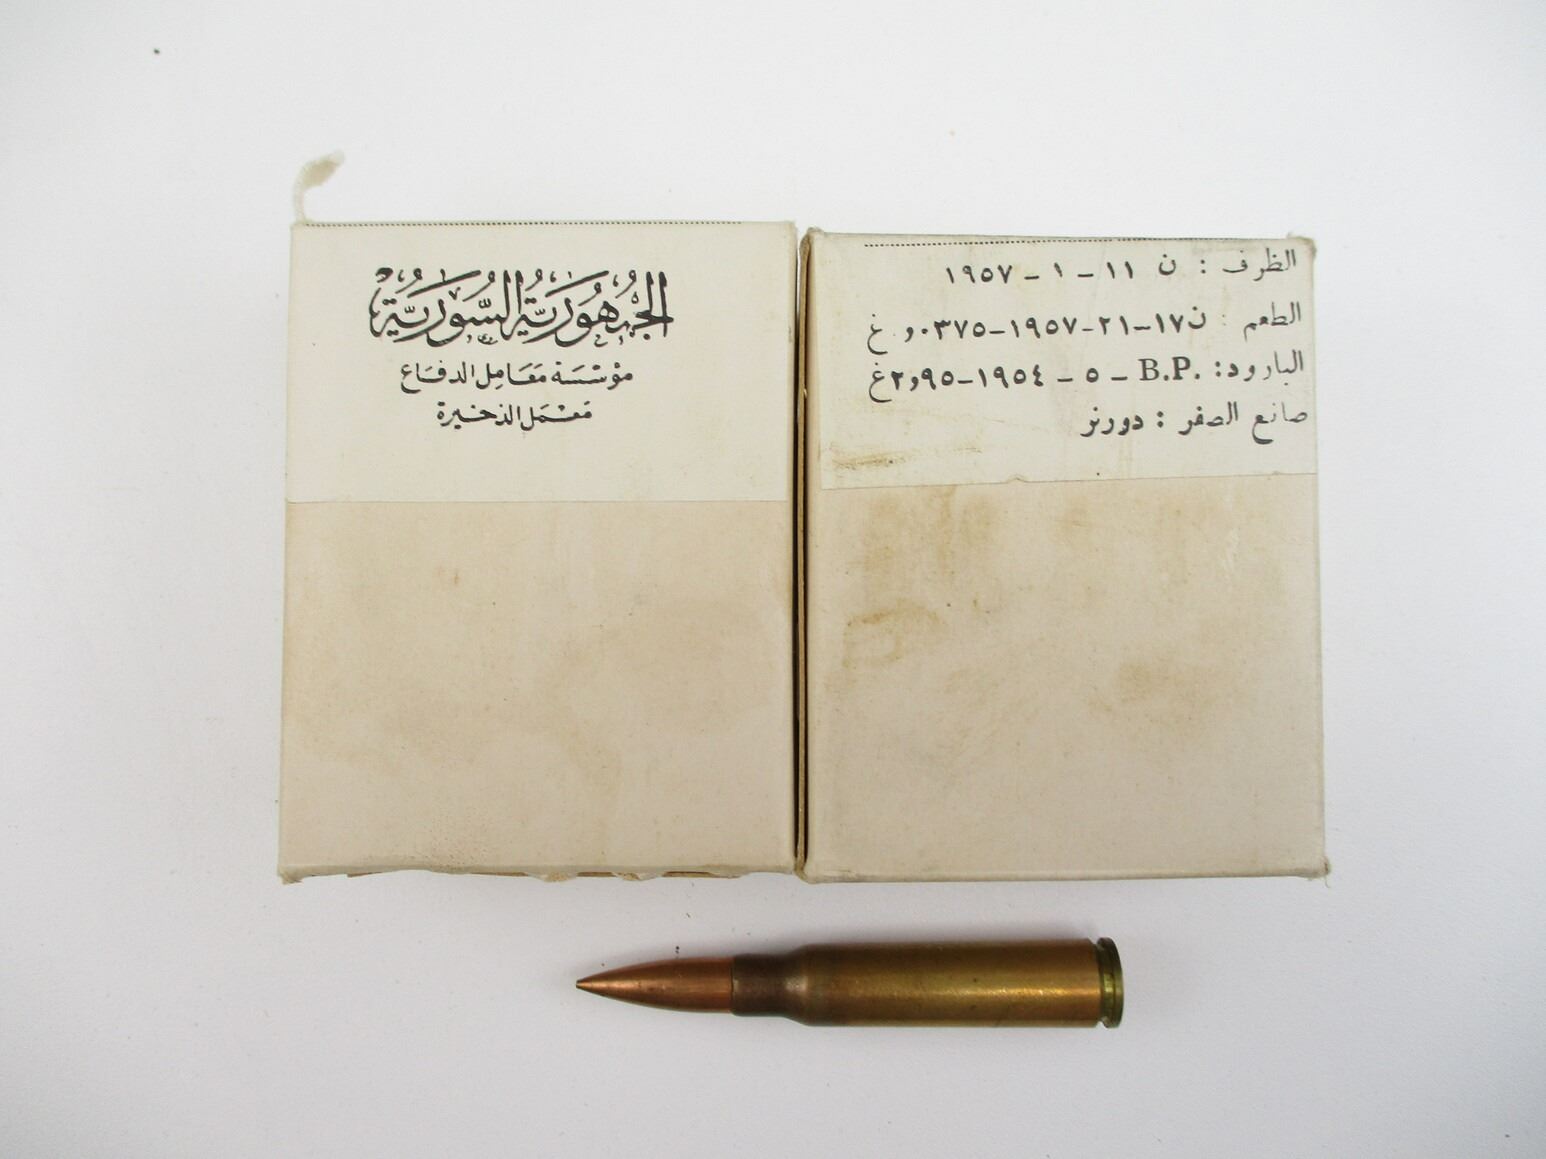 الجمهورية السورية
مؤسسة معامل الدفاع
معمل الذخيرة
الظرف : ن ١١ - ١ - ١٩٥٧
الطعم : ن١٧-٢١-١٩٥٧-٠٣٧٥و٠ غ
البارود: .B.P - ٥ - ١٩٥٤-٩٥و٢غ
صانع الصفر : دورنر